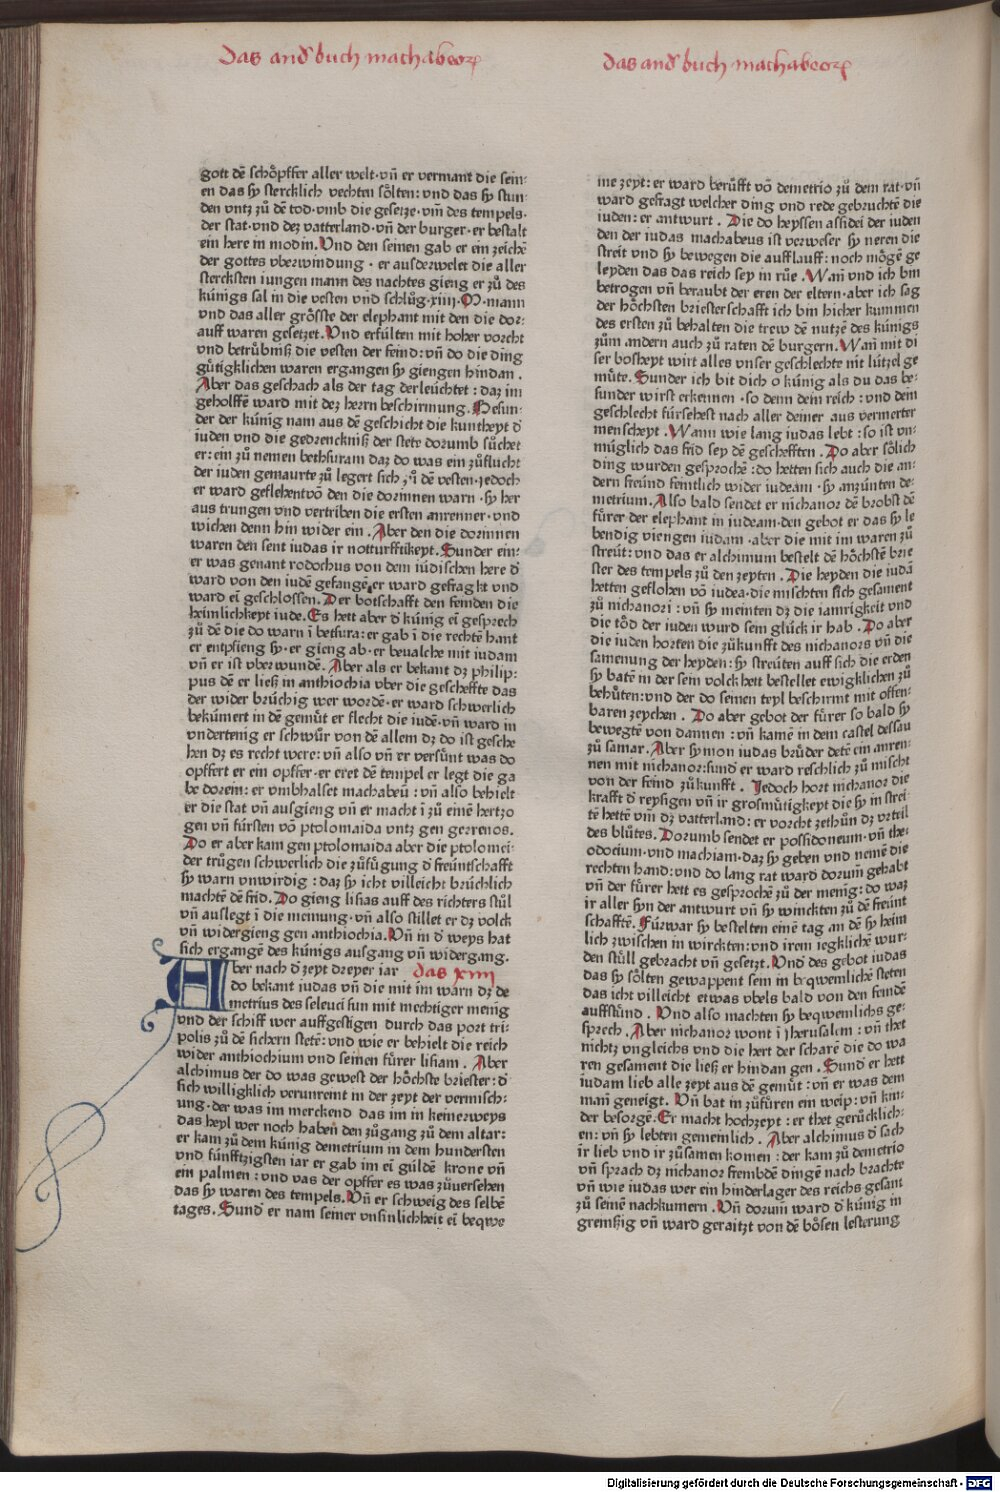 das and̓ buch machabeoꝝ
das and̓ buch machabeoꝝ
gott dē schoͤpffer aller welt·vn̄ er vermant die sein-
en das sy stercklich vechten soͤlten: vnd das sy stun-
den vntz zů dē tod·vmb die gesetze·vm̄ des tempels·
der stat·vnd dez vatterland·vn̄ der burger·er bestalt
ein here in modin. Vnd den seinen gab er ein zeichē
der gottes vberwindung · er auszderwelet die aller
stercksten iungen mann des nachtes gieng er zů des
kúnigs sal in die vesten vnd schlůg·xiiij·M·mann
vnd das aller groͤsste der elephant mit den die dor-
auff waren gesetzet. Vnd erfúlten mit hoher vorcht
vnd betruͤbniß die vesten der feind: vn̄ do die ding
guͤtigklichen waren ergangen sy giengen hindan.
Aber das geschach als der tag derleúchtet: daz im
geholffē ward mit dez herrn beschirmung. Besun-
der der kúnig nam aus dē geschicht die kuntheyt d̓
iuden vnd die gedrenckniß der stete dorumb suͤchet
er: ein zů nemen bethsuram daz do was ein zůflucht
der iuden gemaurte zů legert sich zů dē vesten·iedoch
er ward geflehent vō den die dorinnen warn·sy her
aus trungen vnd vertriben die ersten anrenner·vnd
wichen denn hin wider ein. Aber den die dorinnen
waren den sent iudas ir notturfftikeyt. Sunder ein-
er was genant rodochus von dem iúdischen here d̓
ward von den iudē gefangē er ward gefragkt vnd
ward eī geschlossen. Der botschafft den feinden die
heimlichkeyt iude. Es hett aber d̓ kúnig eī gesprech
zů dē die do warn ī betsura: er gab ī die rechtē hant
er entpfieng sy·er gieng ab·er beualche mit iudam
vn̄ er ist vberwundē. Aber als er bekant dz philip-
pus dē er ließ in anthiochia vber die gescheffte das
der wider bruͤchig wer wordē·er ward schwerlich
bekúmert in dē gemuͤt er flecht die iudē·vn̄ ward in
vndertenig er schwuͤr von dē allem dz do ist gesche
hen dz es recht were: vn̄ also vn̄ er versuͤnt was do
opffert er ein opffer·er eret dē tempel er legt die ga
be dorein: er vmbhalset machabeū: vn̄ also behielt
er die stat vn̄ ausgieng vn̄ er macht ī zů einē hertzo
gen vn̄ fúrsten vō ptolomaida vntz gen gerrenos.
Do er aber kam gen ptolomaida aber die ptolomei-
der truͤgen schwerlich die zůfuͤgung d̓ freúntschafft
sy warn vnwirdig: daz sy icht villeicht bruͤchlich
machtē dē frid. Do gieng lisias auff des richters stůl
vn̄ auslegt ī die meinung·vn̄ also stillet er dz volck
vn̄ widergieng gen anthiochia. Vn̄ in d̓ weys hat
sich ergangē des kúnigs ausgang vn̄ widergang.
Aber nach d̓ zeyt dreyer iar das xiiij
do bekant iudas vn̄ die mit im warn dz de
metrius des seleuci sun mit mechtiger menig
vnd der schiff wer auffgestigen durch das port tri-
polis zů dē sichern stetē: vnd wie er behielt die reich
wider anthiochium vnd seinen fúrer lisiam. Aber
alchimus der do was gewest der hoͤchste briester: d̓
sich willigklich verunreint in der zeyt der vermisch-
ung·der was im merckend das im in keinerweys
das heyl wer noch haben den zůgang zů dem altar:
er kam zů dem kúnig demetrium in dem hundersten
vnd fúnfftzigsten iar er gab im eī guldē krone vn̄
ein palmen: vnd vas der opffer es was zůuersehen
das sy waren des tempels. Vn̄ er schweig des selbē
tages. Sund̓ er nam seiner vnsinlichheit eī beqwe
me zeyt: er ward beruͤfft vō demetrio zů dem rat·vn̄
ward gefragt welcher ding vnd rede gebruchtē die
iuden: er antwurt. Die do heyssen assidei der iuden
den der iudas machabeus ist verweser sy neren die
streit vnd sy bewegen die aufflauff: noch moͤgē ge
leyden das das reich sey in ruͤe. Wan̄ vnd ich bin
betrogen vn̄ beraubt der eren der eltern·aber ich sag
der hoͤchsten briesterschafft ich bin hicher kummen
des ersten zů behalten die trew dē nutzē des kúnigs
zům andern auch zů raten dē burgern. Wan̄ mit di
ser bosheyt wirt alles vnser geschlechte nit lútzel ge
muͤte. Sunder ich bit dich o kúnig als du das be-
sunder wirst erkennen·so denn dem reich: vnd dem
geschlecht fúrsehest nach aller deiner aus vermerter
menscheyt. Wann wie lang iudas lebt: so ist vn-
múglich das frid sey dē geschefften. Do aber soͤlich
ding wurden gesprochē: do hetten sich auch die an-
dern freúnd feintlich wider iudeam·sy anzúnten de-
metrium. Also bald sendet er nichanor dē brobst dē
fuͤrer der elephant in iudeam·den gebot er das sy le
bendig viengen iudam·aber die mit im waren zů
streút: vnd das er alchimum bestelt dē hoͤchstē brie
ster des tempels zů den zeyten. Die heyden die iudā
hetten geflohen vō iudea·die mischten sich gesament
zů nichanori: vn̄ sy meinten dz die iamrigkeit vnd
die toͤd der iuden wurd sein gluͤck ir hab. Do aber
die iuden horten die zůkunfft des nichanors vn̄ die
samenung der heyden: sy streúten auff sich die erden
sy batē in der sein volck hett bestellet ewigklichen zů
behuͤten: vnd der do seinen teyl beschirmt mit offen-
baren zeychen. Do aber gebot der fuͤrer so bald sy
bewegtē von dannen: vn̄ kamē in dem castel dessau
zů samar. Aber symon iudas bruͤder detē ein anren-
nen mit nichanor: sund̓ er ward reschlich zů mischt
von der feind zůkunfft. Jedoch hort nichanor die
krafft d̓ reysigen vn̄ ir grosmuͤtigkeyt die sy in strei-
tē hettē vm̄ dz vatterland: er vorcht zethuͦn dz vrteil
des blůtes. Dorumb sendet er possidoneum·vn̄ the-
odocium·vnd machiam·daz sy geben vnd nemē die
rechten hand: vnd do lang rat ward dorum̄ gehabt
vn̄ der fuͤrer hett es gesprochē zů der menig: do waz
ir aller syn der antwurt vn̄ sy winckten zů dē freúnt
schafftē. Fúrwar sy bestelten einē tag an dē sy heim
lich zwischen in wirckten: vnd irem iegklichē wur-
den stuͤll gebracht vn̄ gesetzt. Vnd des gebot iudas
das sy soͤlten gewappent sein in beqwemlichē steten
das icht villeicht etwas vbels bald von den feindē
auffstuͤnd. Vnd also machten sy beqwemlichs ge-
sprech. Aber nichanor wont ī jherusalem: vn̄ thet
nichtz vngleichs vnd die hert der scharē die do wa
ren gesament die ließ er hindan gen. Sund̓ er hett
iudam lieb alle zeyt aus dē gemuͤt: vn̄ er was dem
man̄ geneigt. Vn̄ bat in zůfuͤren ein weip: vn̄ kin-
der besorgē. Er macht hochzeyt: er thet geruͤcklich-
en: vn̄ sy lebten gemeinlich. Aber alchimus d̓ sach
īr lieb vnd ir zůsamen komen: der kam zů demetrio
vn̄ sprach dz nichanor frembdē dingē nach brachte
vn̄ wie iudas wer ein hinderlager des reichs gesant
zů seinē nachkumern. Vn̄ dorum̄ ward d̓ kúnig in
greinßig vn̄ ward geraitzt von dē boͤsen lesterung
Digitalisierung gefördert durch die Deutsche Forschungsgemeinschaft - DFG